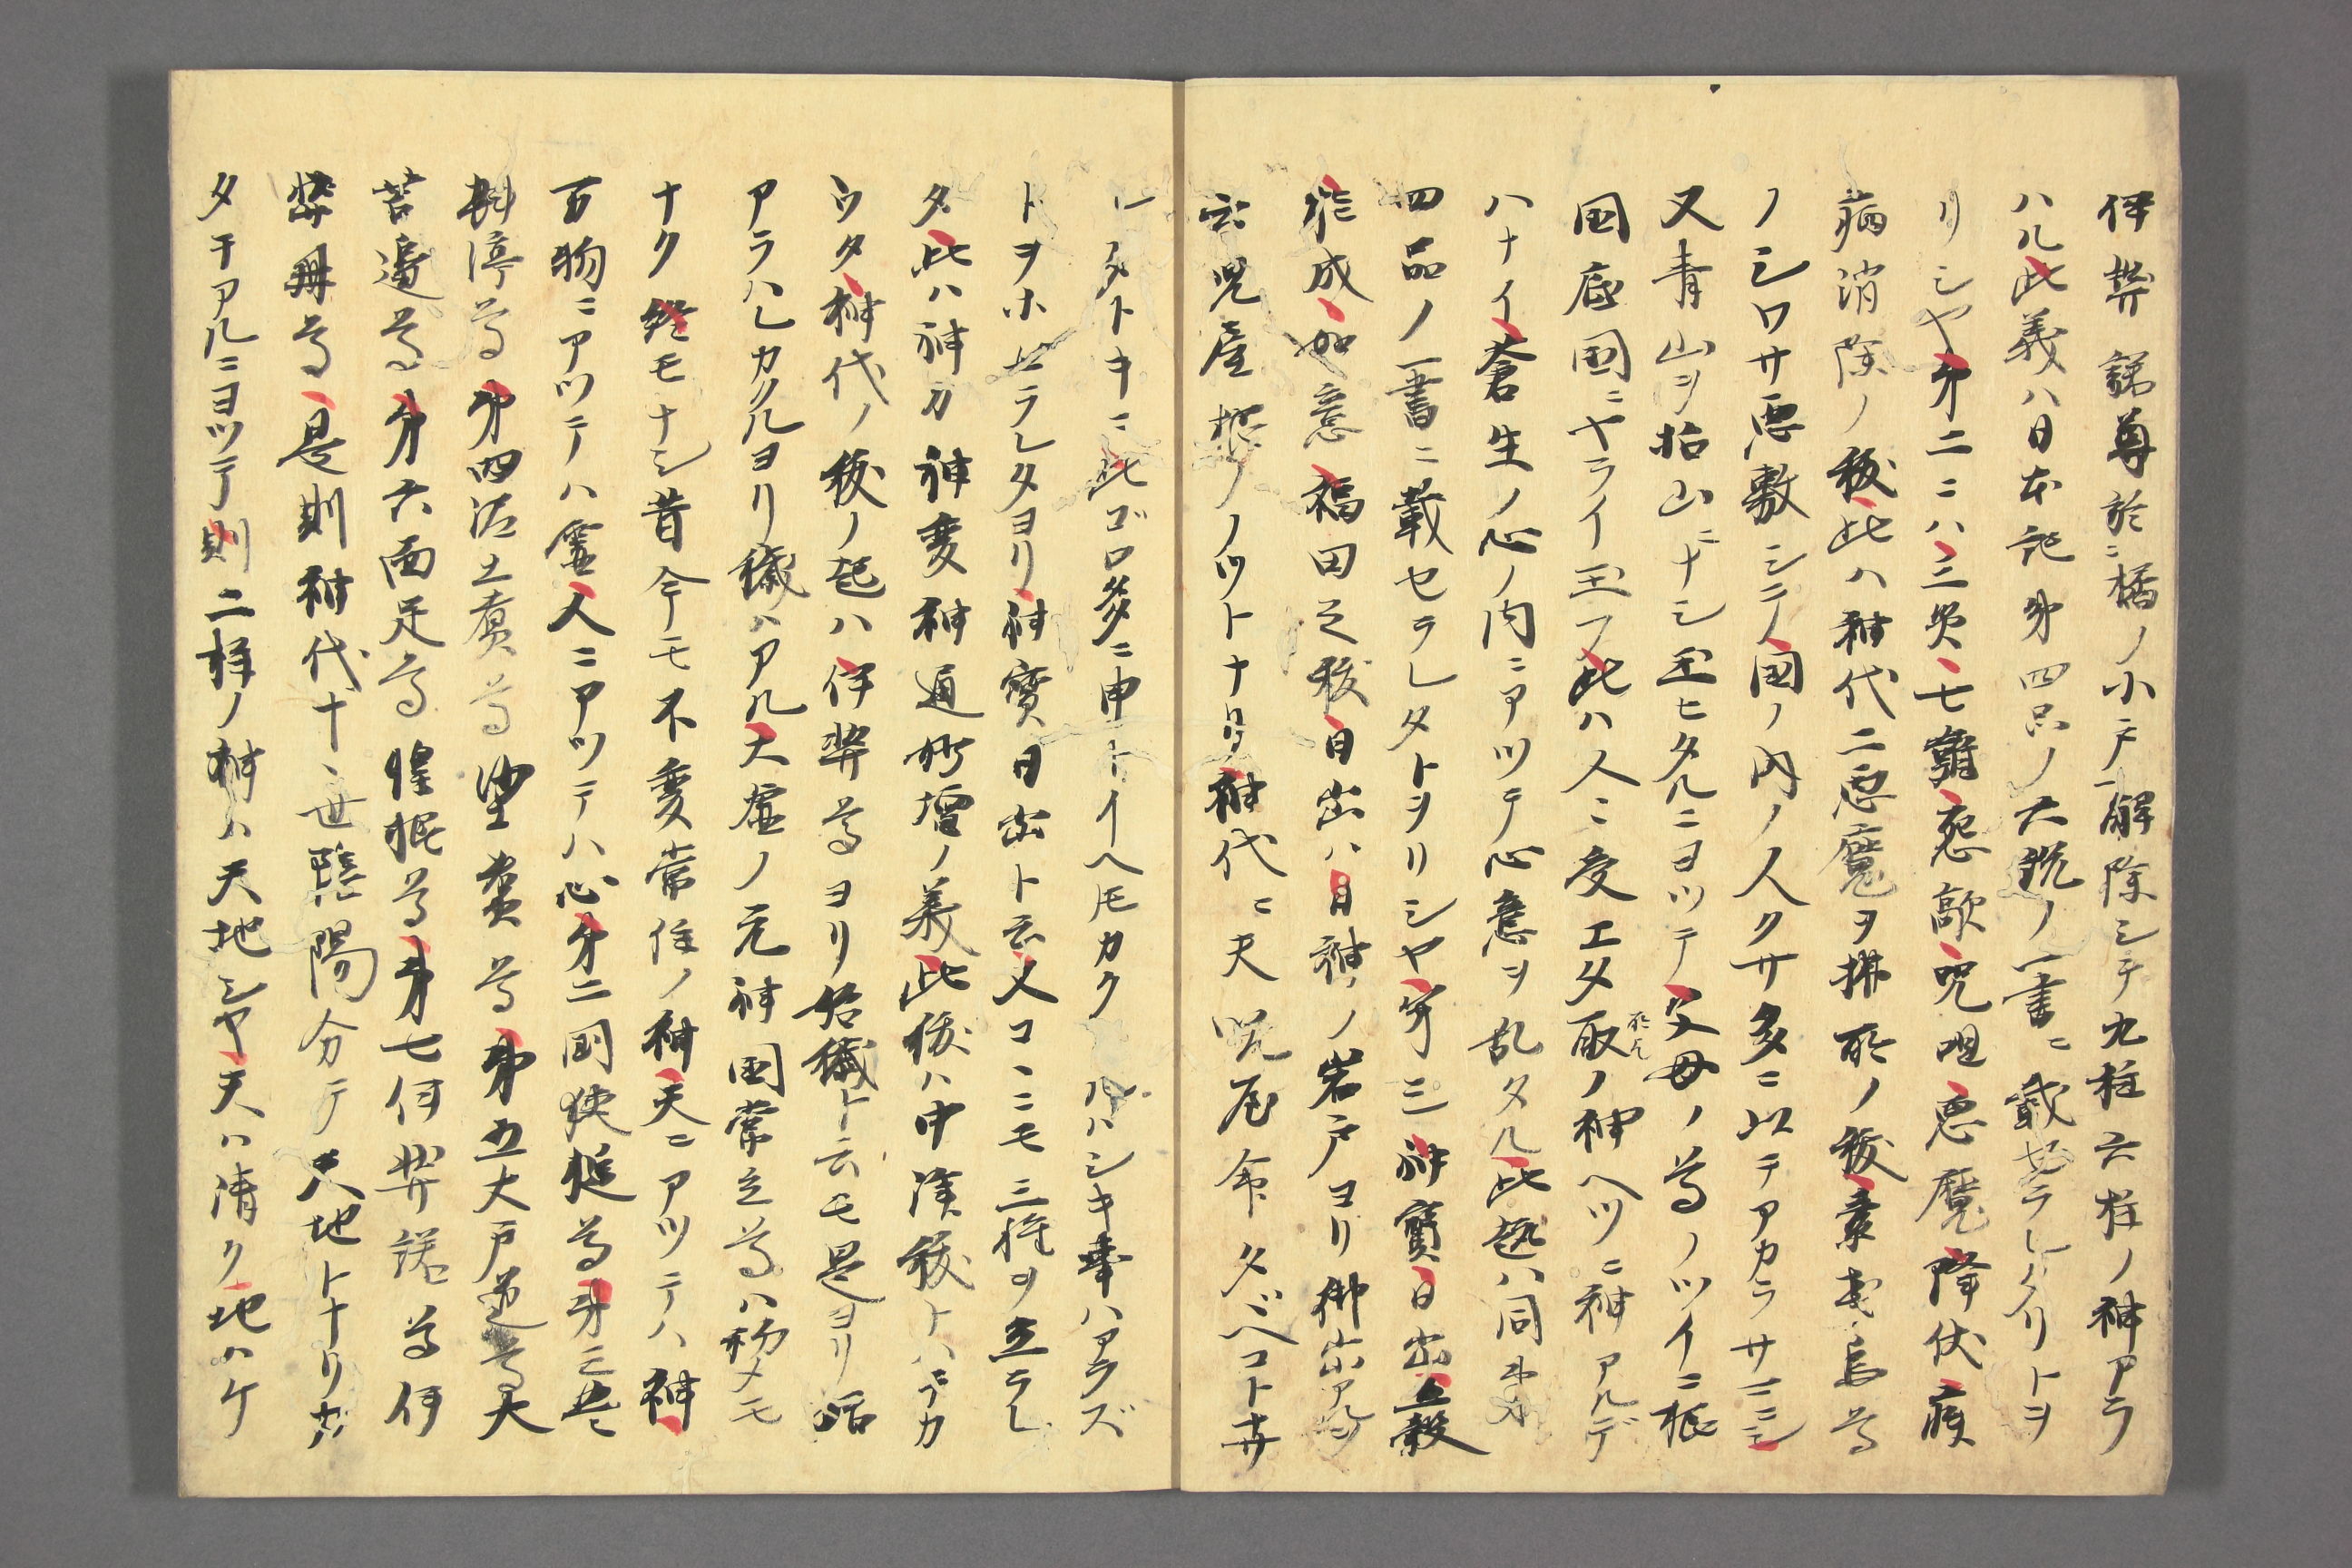 伊弉諾尊於ニ橘ノ小戸解除シテ九柱六柱ノ神アラ
ハル此義ハ日本記第四品ノ六説ノ一書ニ載セラレタリトヲ
リシヤ第二ニハ三災七難怨敵呪咀悪魔降伏疾
病消除ノ祓此ハ神代ニ悪魔ヲ拂所ノ祓素戔烏尊
ノシワサ悪敷シテ国ノ内ノ人クサ多ニ以テアカラサニニシ
又青山ヲ枯山ニナシ玉ヒタルニヨツテ父母ノ尊ノツイニ根
国底国ニヤライ玉フ此ハ人ニ受エタ取ノ神ヘツニ神アルデ
ハナイ蒼生ノ心ノ内ニアツテ心意ヲ乱タル此趣ハ同第
四品ノ一書ニ載セラレタトヲリシヤ第三神寶日出五穀
能成如意福田之祓日出ハ日神ノ岩戸ヨリ御出アルヲ
云児産根ノノツトナリ神代ニ天児屋命タベコトサ
シタトキニ此ゴロ多ニ申トイヘ𪜈カク ルハシキ事ハアラズ
トヲホセラレタヨリ神寶日出ト云又コヽニモ三種ヲ立ラレ
タ此ハ神力神変神通妙壇ノ義此祓ハ中漢祓トハチカ
ウタ神代ノ祓ノ起ハ伊弉尊ヨリ始穢ト云モ是ヨリ話
アラハレカクルヨリ穢ハアル大虚ノ元神国常立尊ハ初メモ
ナク終モナシ昔今モ不変常住ノ神天ニアツテハ神
万物ニアツテハ霊人ニアツテハ心第二国狭槌尊第三豊
斟渟尊第四泥土煮尊沙土煮尊第五大戸道尊大
苫邊尊第六面足尊惶根尊第七伊弉諾尊伊
弉冊尊是則神代十一世陰陽分テ天地トナリカ
タチアルニヨツテ則二柱ノ神ハ天地シヤ天ハ清ク地ハケ